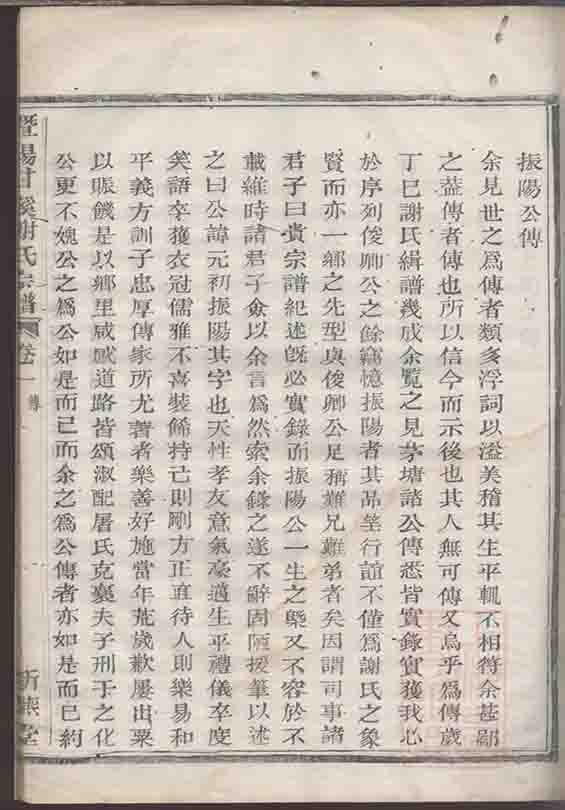 振陽公傳
余見世之爲傳者類多浮詞以溢美稽其生平輒不相符余甚鄙
之葢傳者傳也所以信今而示後也其人無可傳又烏乎爲傳歲
丁巳謝氏緝譜幾成余覽之見茅塘諸公傳悉皆實錄實獲我心
於序列俊卿公之餘竊憶振陽者其昂笙行誼不僅爲謝氏之象
賢而亦一鄉之先型與俊卿公足稱難兄難弟者矣因謂司事諸
君子曰貴宗譜紀述旣必實錄而振陽公一生之槩又不容於不
載維時諸君子僉以余言爲然索余錄之遂不辭固陋援筆以述
之曰公諱元初振陽其字也天性孝友意氣豪邁生平禮儀卒度
笑語卒獲衣冠儒雅不喜裝餙持己則剛方正直待人則樂易和
平義方訓子忠厚傳家所尤著者樂善好施當年荒歲歉屢出粟
以賑饑是以鄉里咸感道路皆頌淑配屠氏克襄夫子刑于之化
公更不媿公之爲公如是而已而余之爲公傳者亦如是而已約
暨陽甘溪謝氏宗譜 卷一 傳